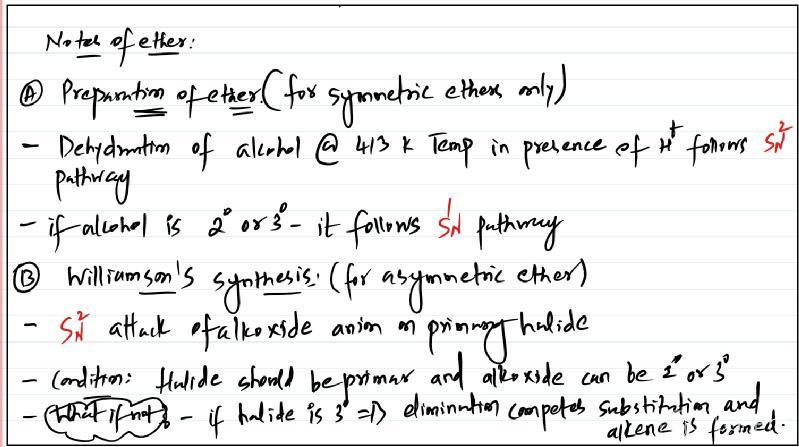 Notes of ether:
Ⓐ Preparation of ether (for symmetric ethers only)
- Dehydration of alcohol @ 413 K Temp in presence of H⁺ follows SN²
pathway
- if alcohol is 2° or 3° - it follows SN¹ pathway
Ⓑ Williamson's synthesis: (for asymmetric ether)
- SN² attack of alkoxide anion on primary halide
- Condition: Halide should be primar and alkoxide can be 2° or 3°
- What if not? - if halide is 3° => elimination competes substitution and
alkene is formed.